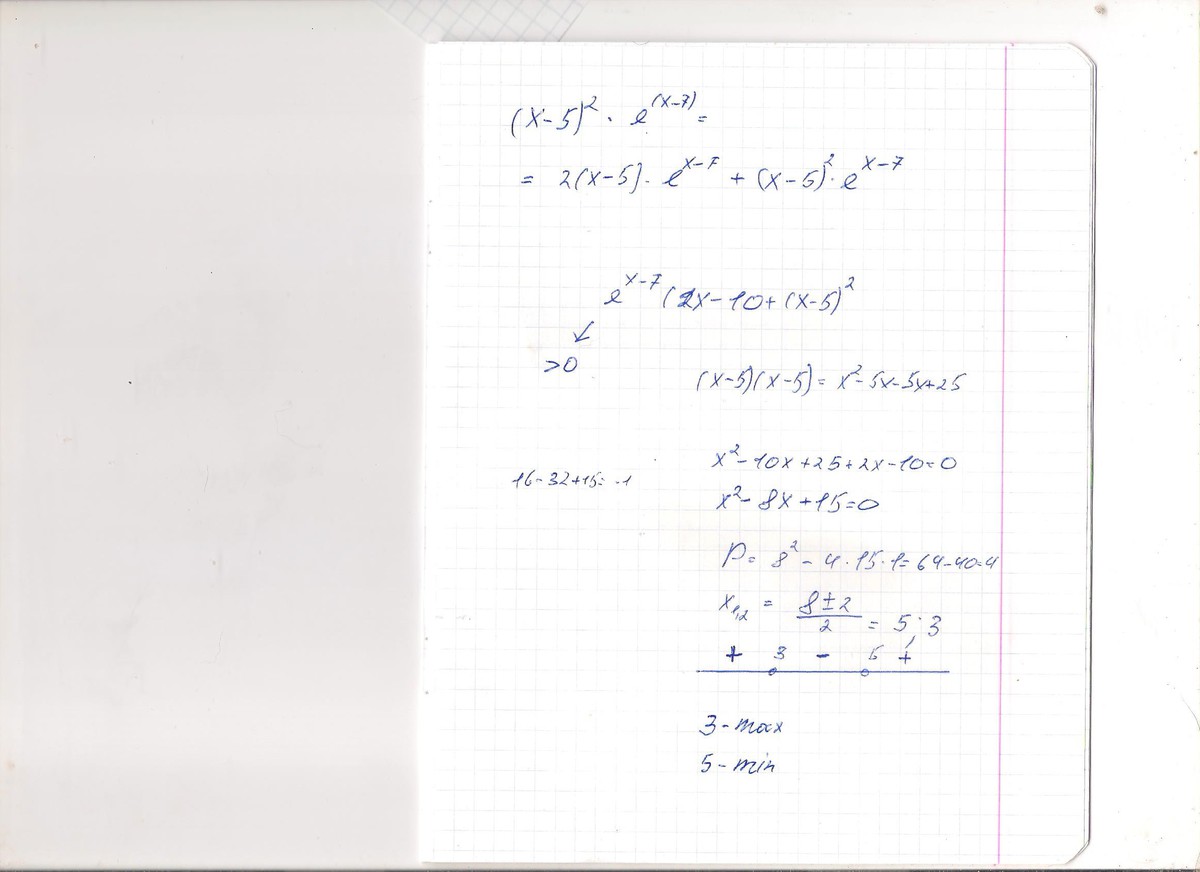 (x-5)² · e^(x-7) =
= 2(x-5) · e^x-7 + (x-5)² · e^x-7
e^x-7 (2x-10+(x-5)²
↙
>0
(x-5)(x-5) = x²-5x-5x+25
x²-10x+25+2x-10=0
16-32+15= -1
x²-8x+15=0
D= 8²-4·15·1=64-40=4
x1,2 = 8±2/2 = 5; 3
+ 3 - 5 +
3-max
5-min